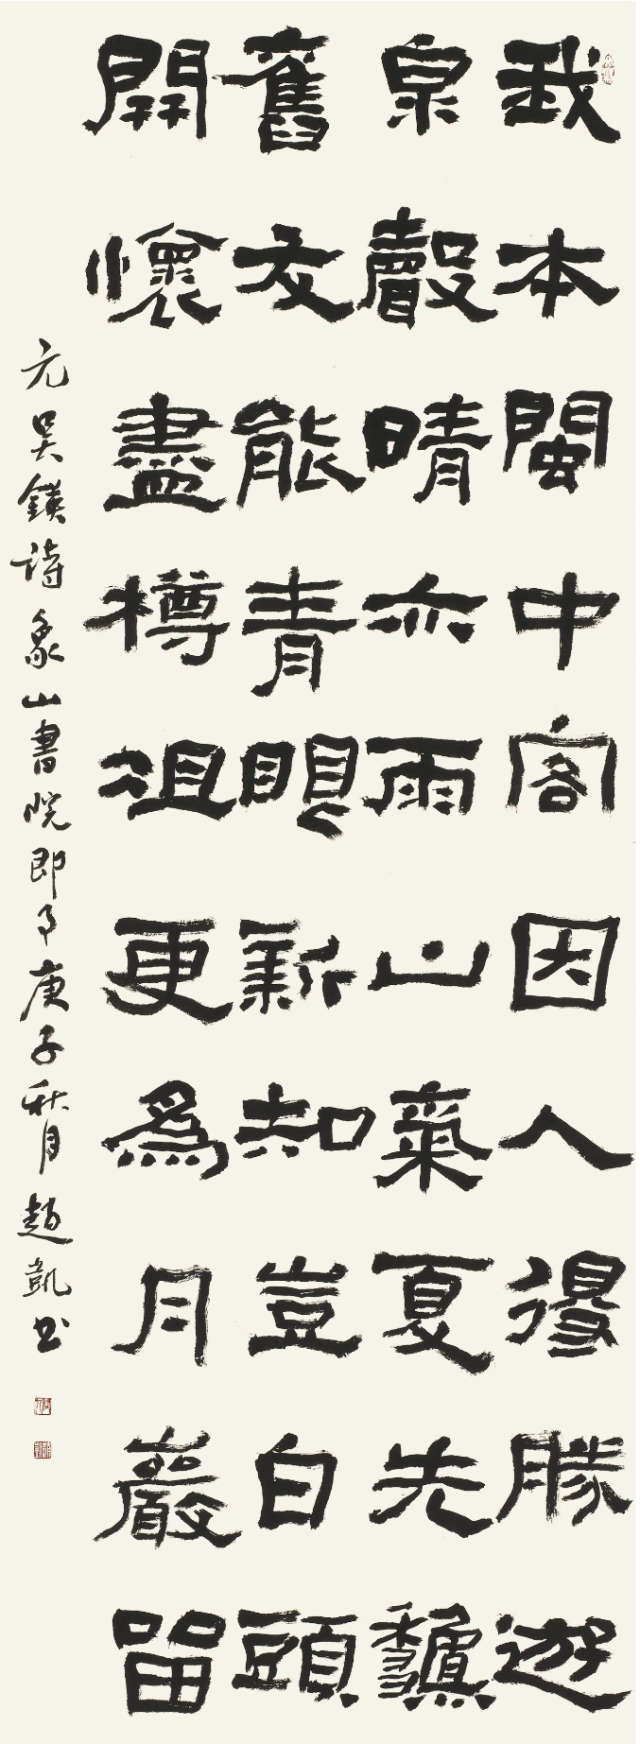 我本閩中客因人得勝遊
泉聲晴亦雨山氣夏先龝
舊友能青眼新知豈白頭
開懷盡樽俎更為月巖留
元吴鎂詩象山書院即事庚子秋月趙凱书